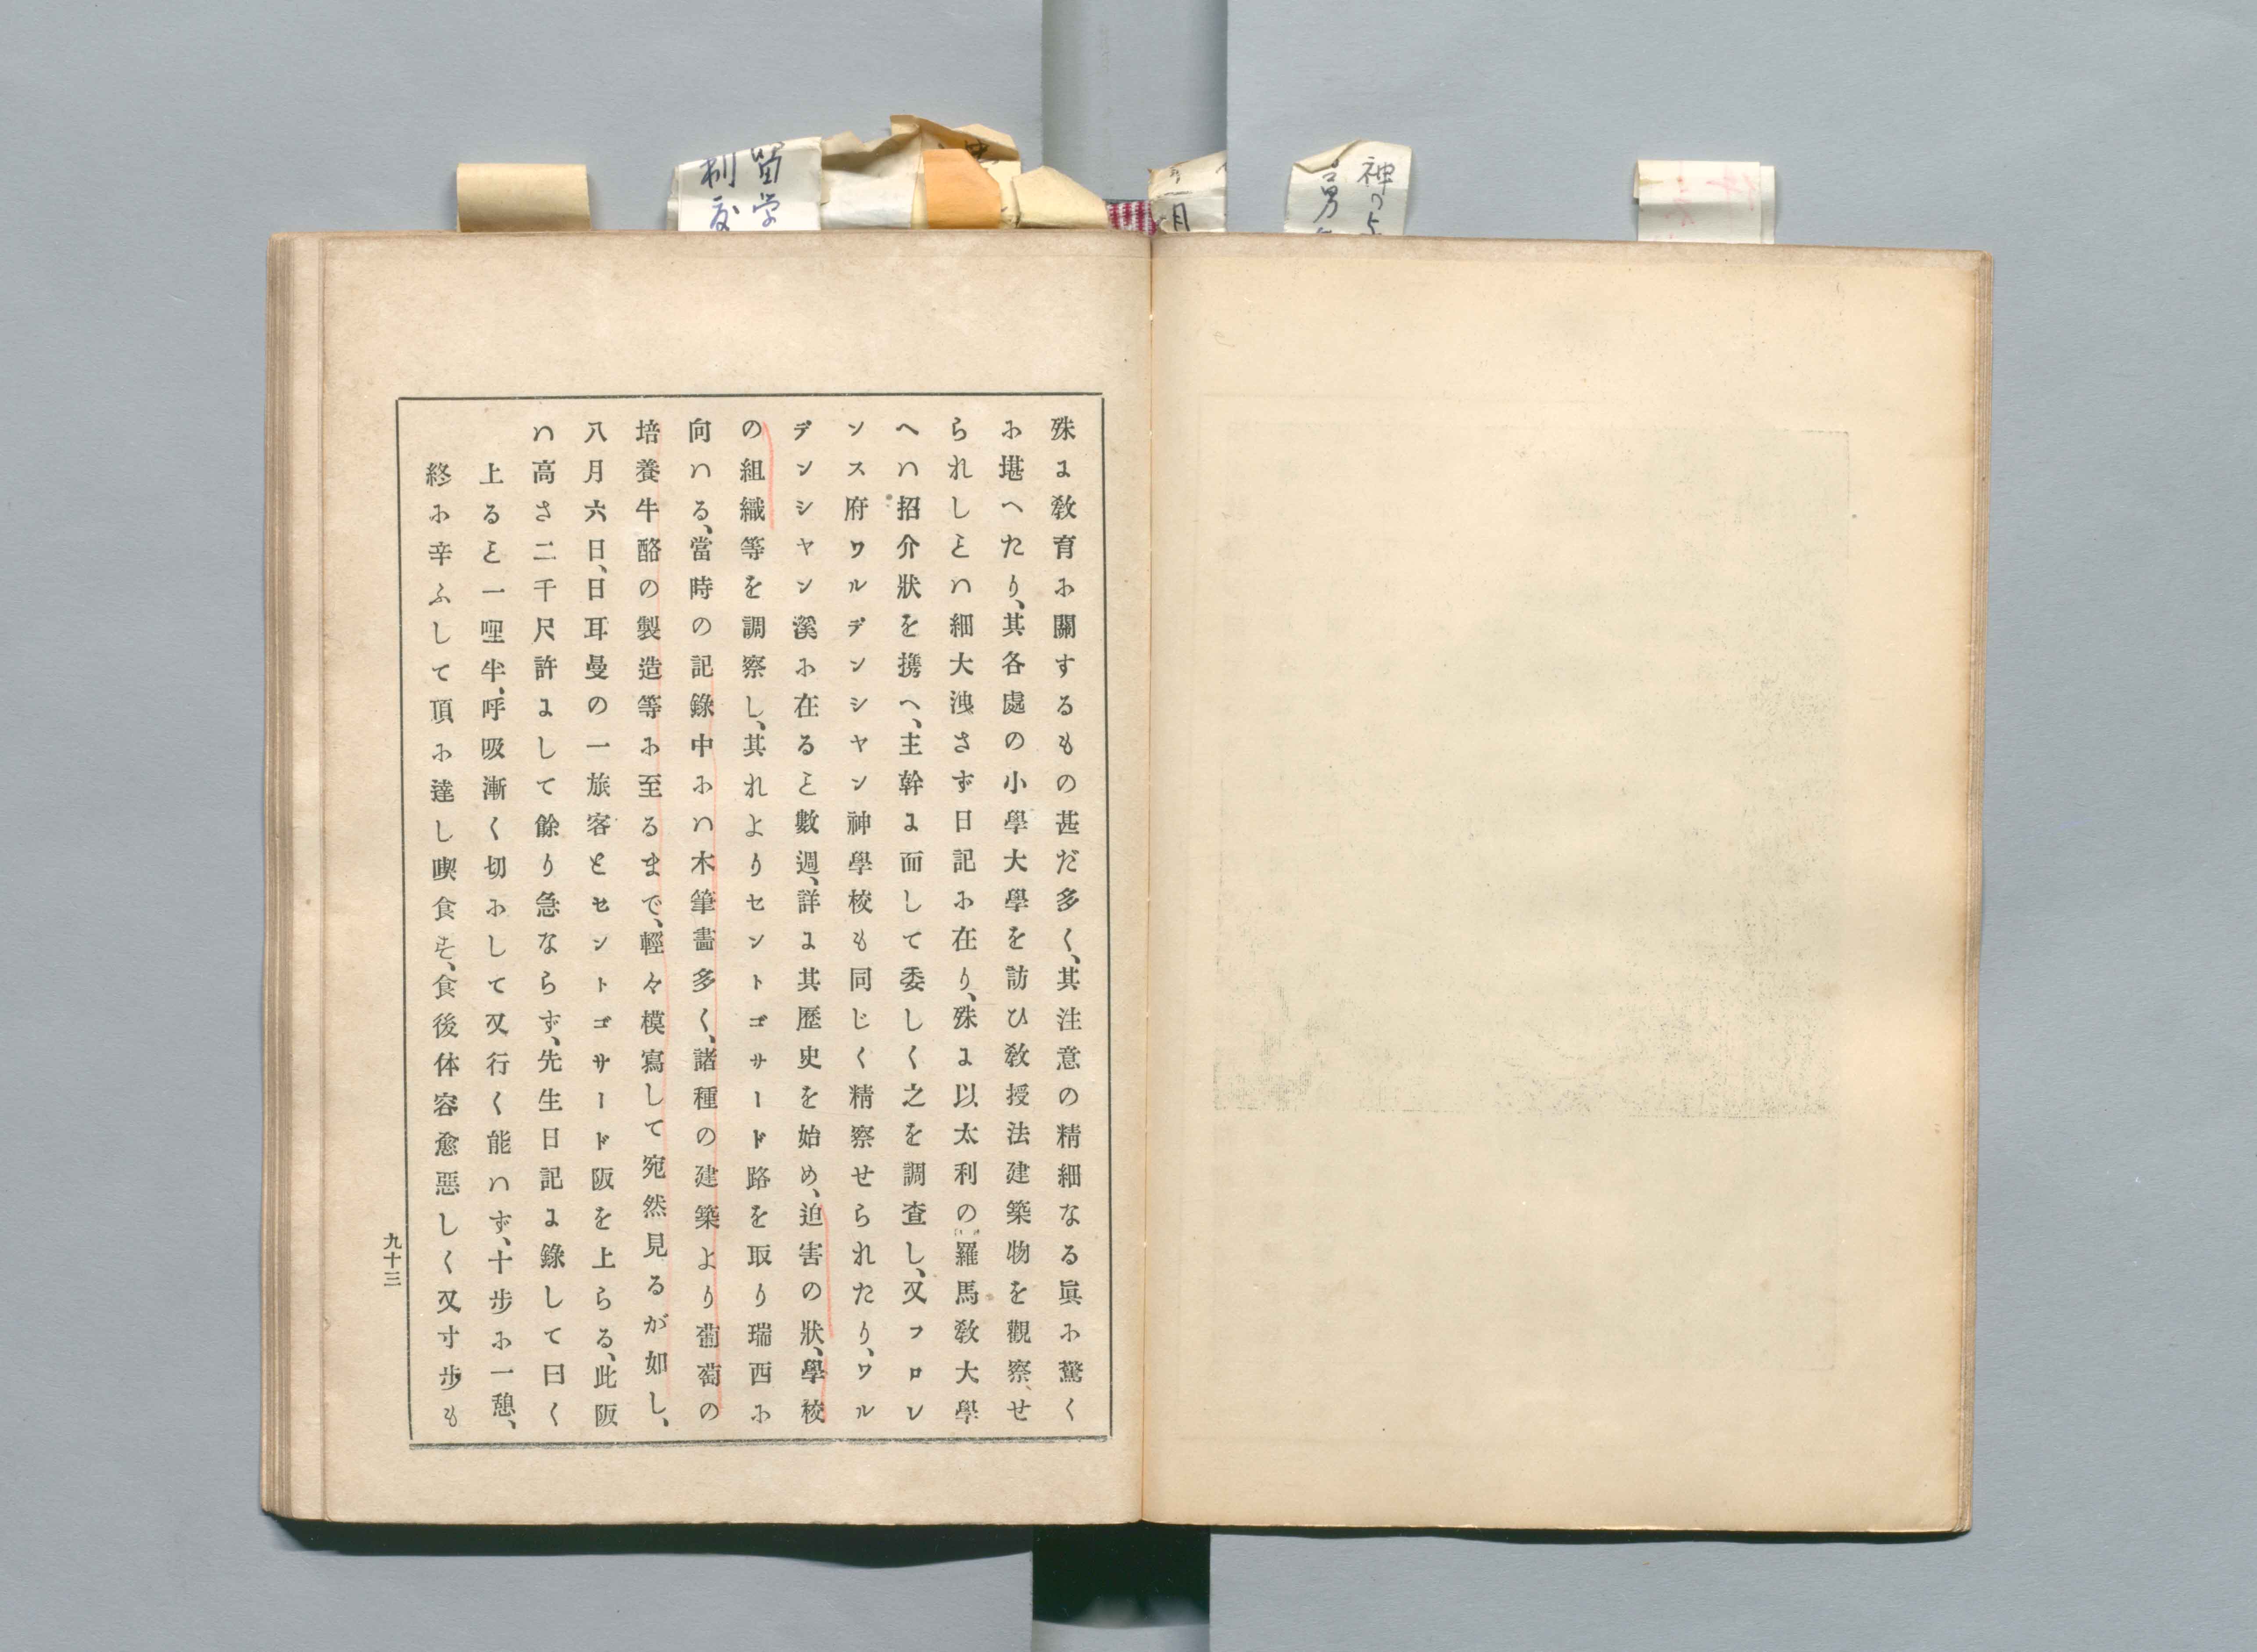 殊に教育に關するもの甚だ多く、其注意の精細なる眞に驚く
に堪へたり、其各處の小學大學を訪ひ教授法建築物を觀察せ
られしヿハ細大洩さず日記に在り、殊に以太利の羅馬教大學
へハ招介狀を携へ、主幹に面して委しく之を調查し、又フロレ
ンス府ワルデンシヤン神學校も同じく精察せられたり、ワル
デンシヤン溪に在るヿ數週、詳に其歷史を始め、迫害の狀、學校
の組織等を調察し、其れよりセントゴサード路を取り瑞西に
向ハる、當時の記錄中にハ木筆畵多く、諸種の建築より葡萄の
培養牛酪の製造等に至るまで、輕々模寫して宛然見るが如し、
八月六日、日耳曼の一旅客とセントゴサード阪を上らる、此阪
ハ高さ二千尺許にして餘り急ならず、先生日記に錄して曰く
上るヿ一哩半、呼吸漸く切にして又行く能ハず、十步に一憩、
終に辛ふして頂に達し喫食す、食後体容愈惡しく又寸步も
九十三
留学
制度
月
神の